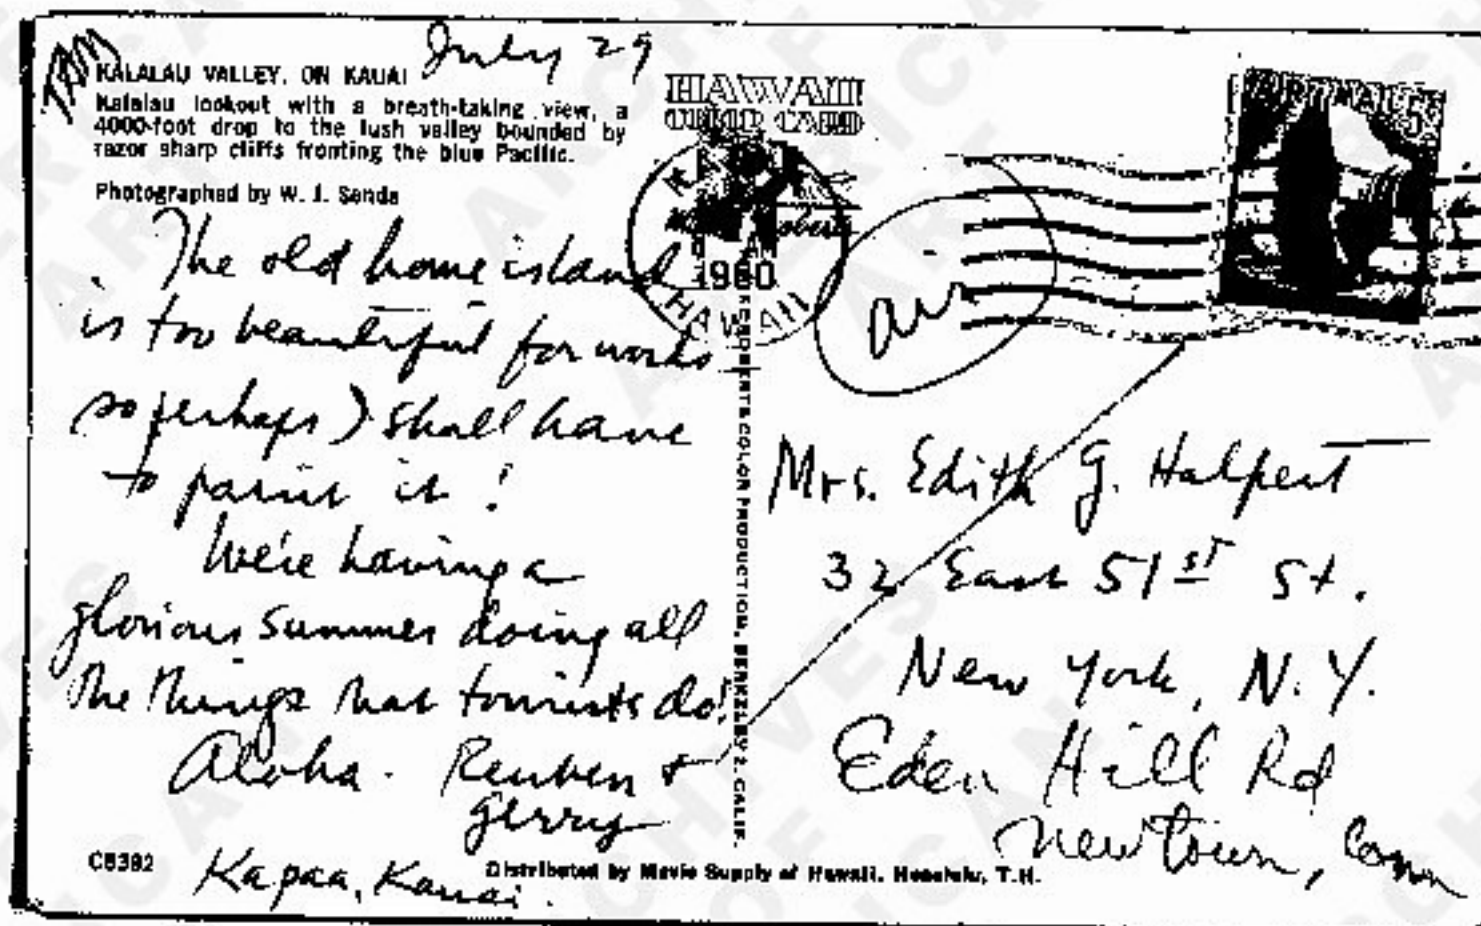 July 29
KALALAU VALLEY, ON KAUAI
Kalalau lookout with a breath-taking view, a
4000-foot drop to the lush valley bounded by
razor sharp cliffs fronting the blue Pacific.
Photographed by W. J. Senda
The old home island
is too beautiful for words
so perhaps I shall have
to paint it!
We're having a
glorious summer doing all
the things that tourists do!
Aloha. Reuben &
Gerry
Kapaa, Kauai.
C8382
Distributed by Movie Supply of Hawaii, Honolulu, T.H.
COLOR PRODUCTION, BERKELEY 2, CALIF.
HAWAII
COLOR CARD
1960
HAWAII
air
Mrs. Edith G. Halpert
32 East 51st St.
New York, N.Y.
Eden Hill Rd
Newtown, Conn